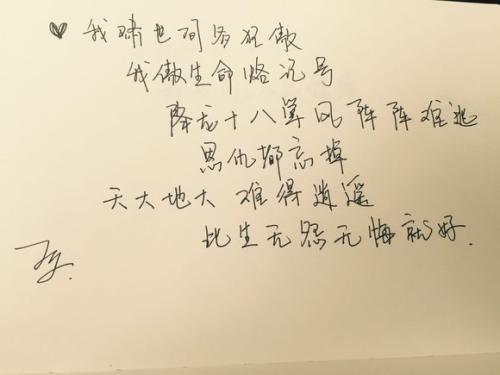 我啸世间多狂傲
我傲生命烙记号
降龙十八掌风阵阵难逃
恩仇都忘掉
天大地大 难得逍遥
此生无怨无悔就好.